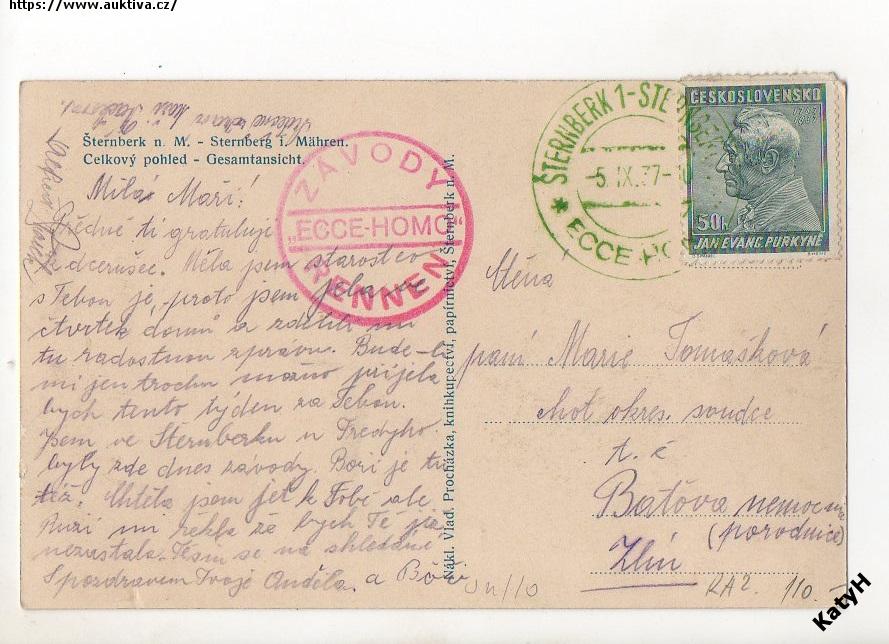 https://www.auktiva.cz/
Šternberk n. M. - Sternberg i. Mähren.
Celkový pohled - Gesamtansicht.
ZÁVODY
„ECCE-HOMO“
RENNEN
ŠTERNBERK 1-STERNBERG
-5.IX.37-
ECCE-HOMO
ČESKOSLOVENSKO
50h
JAN EVANG. PURKYNĚ
Milá Maří!
Předně ti gratuluji
k dcerušce. Měla jsem starost co
s Tebou je, proto jsem jela ve
čtvrtek domů a zdělili mi
tu radostnou zprávu. Bude-li
mi jen trochu možno přijela
bych tento týden za Tebou.
Jsem ve Šternberku u Fredyho
byly zde dnes závody. Boři je tu
též. Chtěla jsem jet k Tobě ale
mi řekla že bych Tě již
nezastala. Těším se na shledanou
S pozdravem Tvoje Anděla. a
Nákl. Vlad. Procházka, knihkupectví, papírnictví, Šternberk n. M.
Ctěná
paní Marie Tomášková
choť okres. soudce
t. č
Baťova nemocnice
(porodnice)
Zlín
RA2. 110.-
KatyH